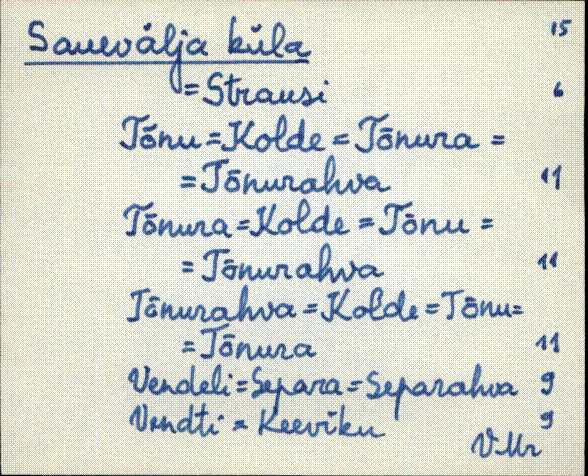 Sauevälja küla 15
= Strausi 6
Tõnu = Kolde = Tõnura =
= Tõnurahva 11
Tõnura = Kolde = Tõnu =
= Tõnurahva 11
Tõnurahva = Kolde = Tõnu =
= Tõnura 11
Vendeli = Separa = Separahva 9
Vendti = Keeviku 9
VMr